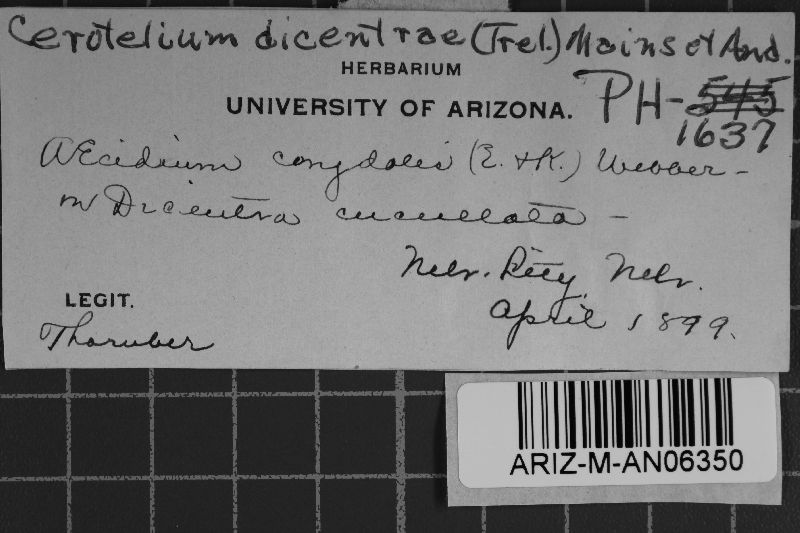 Cerotelium dicentrae (Trel.) Mains et And.
HERBARIUM
UNIVERSITY OF ARIZONA.
PH-545
1637
Æcidium corydalis (E. & K.) Webber -
on Dicentra cucullata -
Nebr. City, Nebr.
April 1899.
LEGIT.
Thornber
ARIZ-M-AN06350